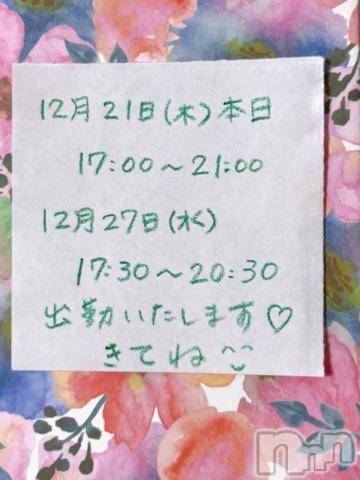 12月21日(木)本日
17:00～21:00
12月27日(水)
17:30～20:30
出勤いたします♡
きてね